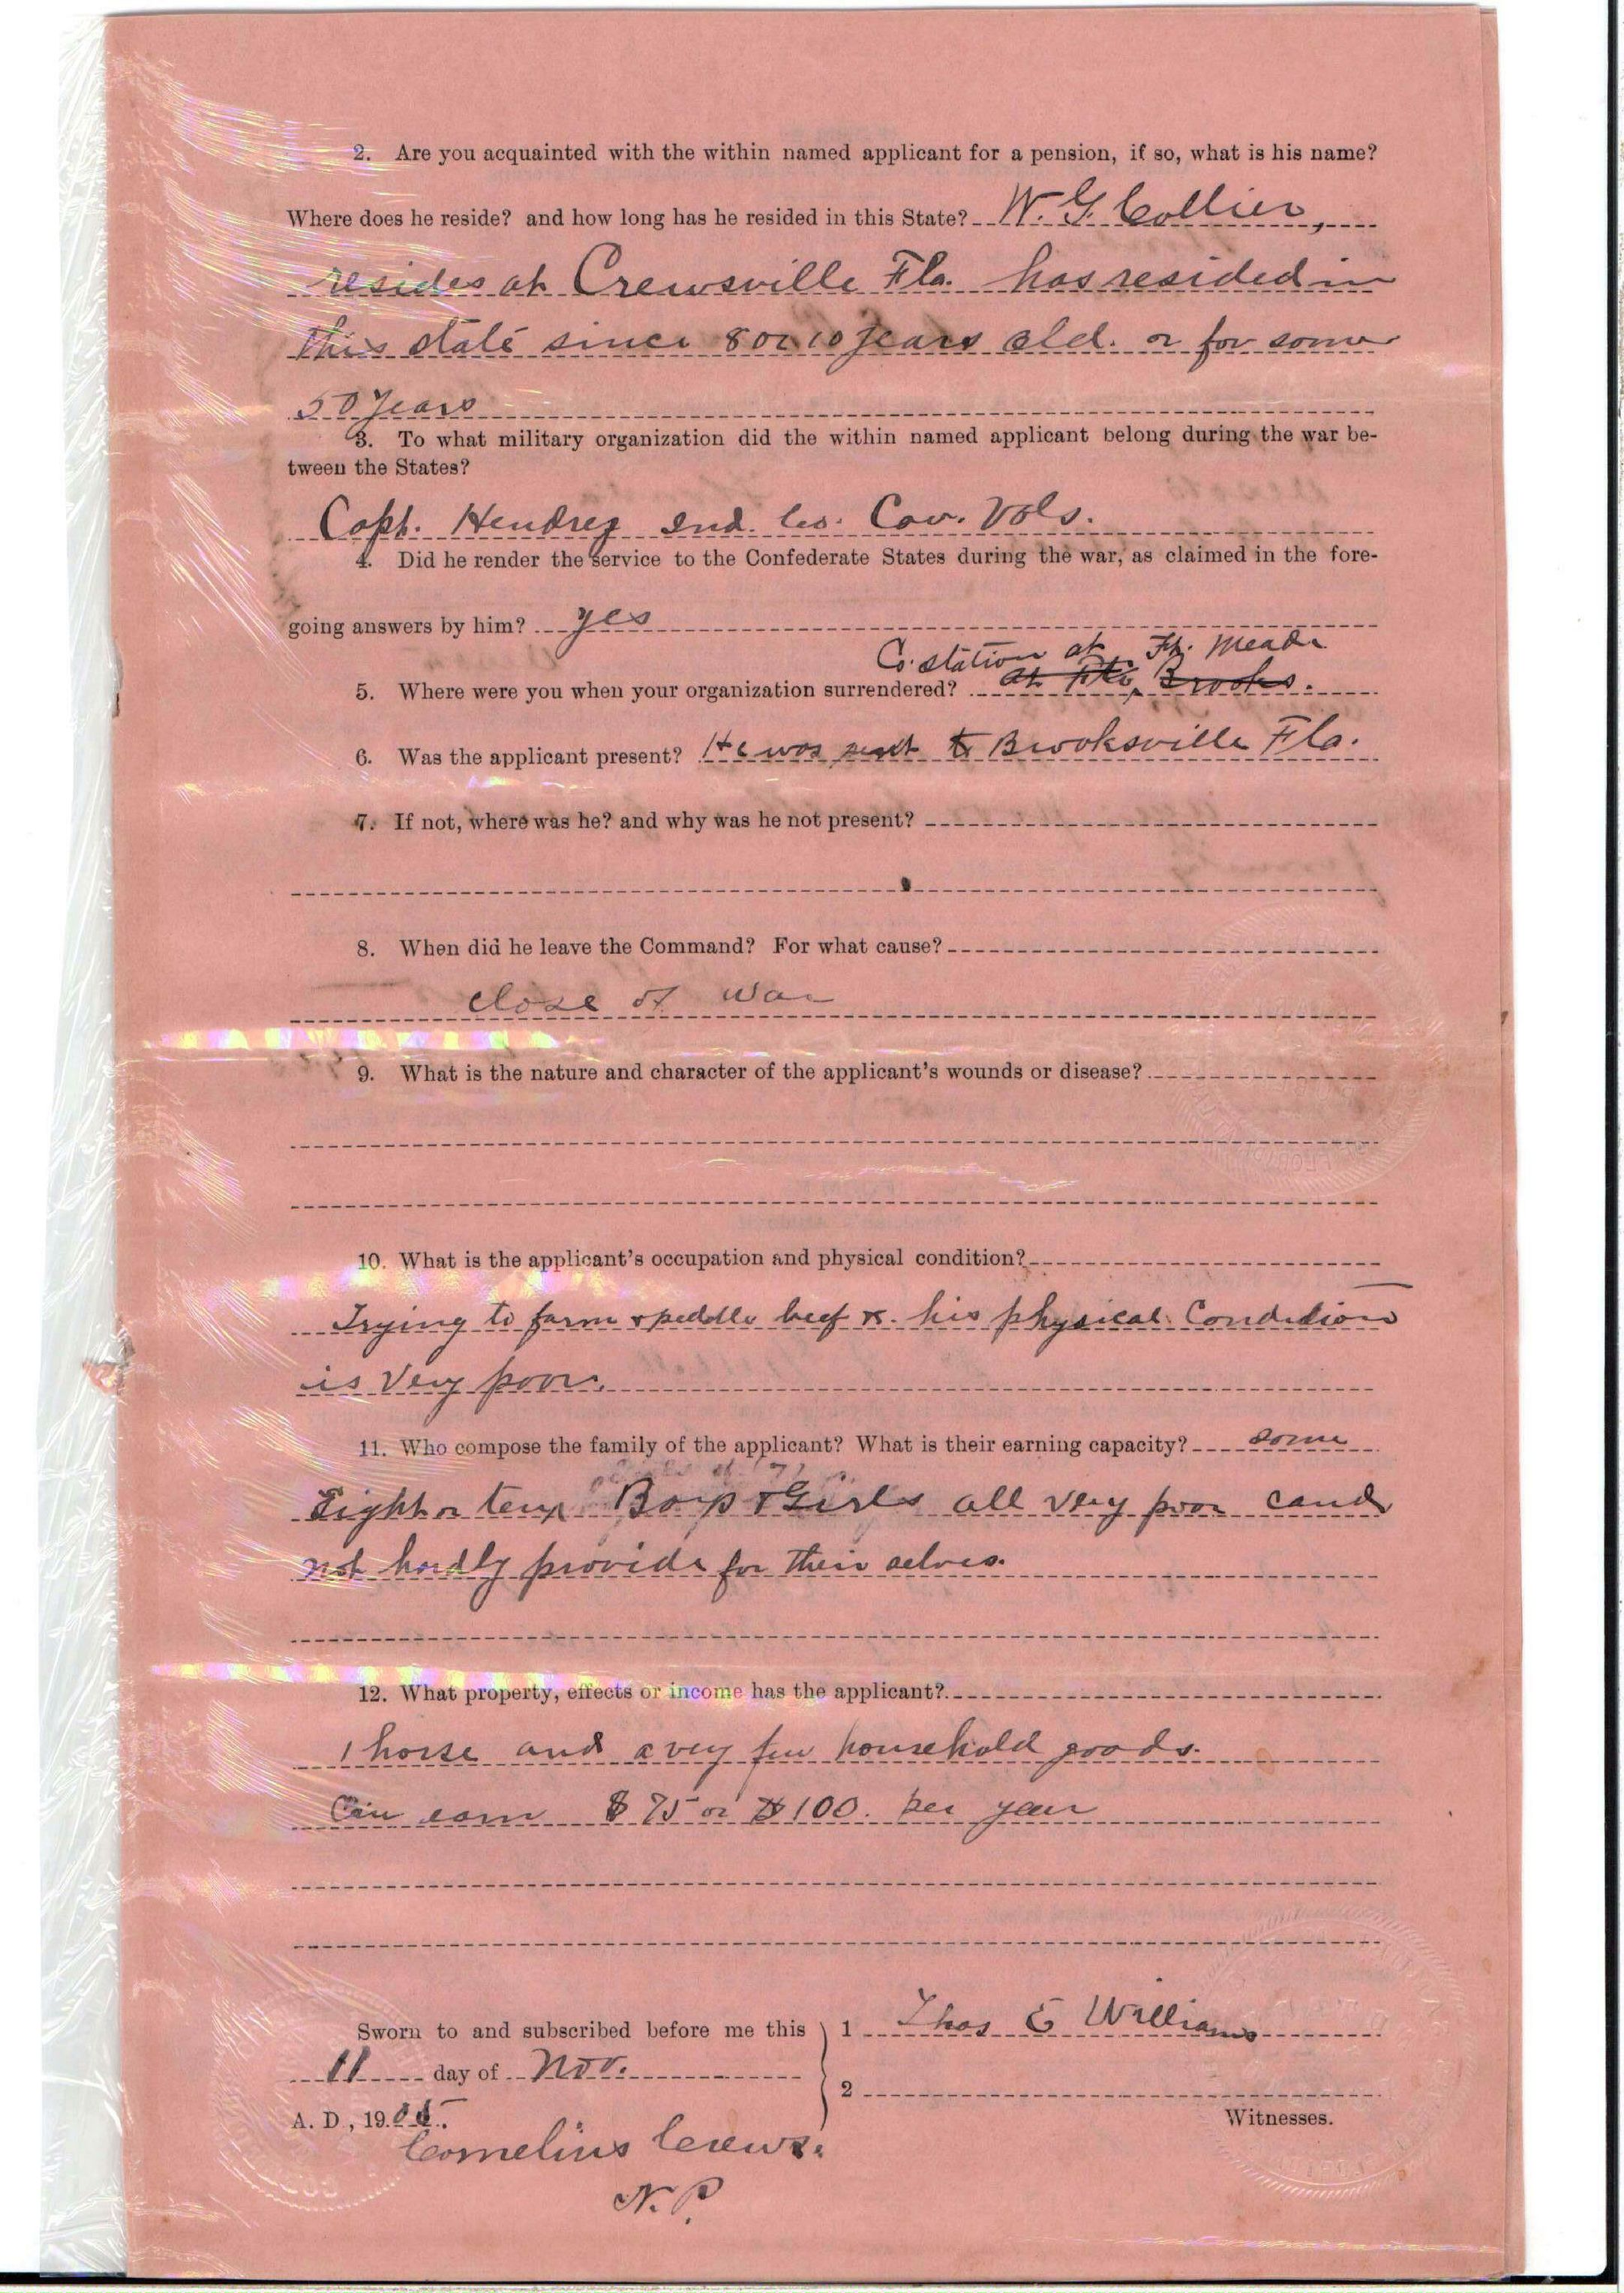 2. Are you acquainted with the within named applicant for a pension, if so, what is his name?
Where does he reside? and how long has he resided in this State? W. G. Collier,
resides at Crewsville Fla. has resided in
this state since 8 or 10 years old. or for some
50 years
3. To what military organization did the within named applicant belong during the war be-
tween the States?
Capt. Hendrey Ind. Co. Cav. Vols.
4. Did he render the service to the Confederate States during the war, as claimed in the fore-
going answers by him? yes
Co. station at Ft. Meade
5. Where were you when your organization surrendered? at Ft. Brooks.
6. Was the applicant present? He was sent to Brooksville Fla.
7. If not, where was he? and why was he not present?
8. When did he leave the Command? For what cause?
close of war
9. What is the nature and character of the applicant's wounds or disease?
10. What is the applicant's occupation and physical condition?
Trying to farm & peddle beef &. his physical Condition
is very poor.
11. Who compose the family of the applicant? What is their earning capacity? some
Eight or ten Boys & Girls all very poor cand
not hardly provide for their selves.
12. What property, effects or income has the applicant?
1 horse and a very few household goods.
Can earn $75 or $100. per year
Sworn to and subscribed before me this
11 day of Nov.
A. D., 19
1 Thos E Williams
2
Witnesses.
Cornelius Crews.
N. P.